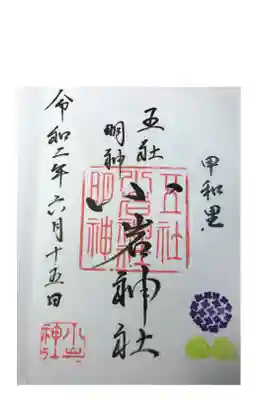 甲和里
五社
明神
小岩神社
五社
明神
令和二年六月十五日
小岩
神社